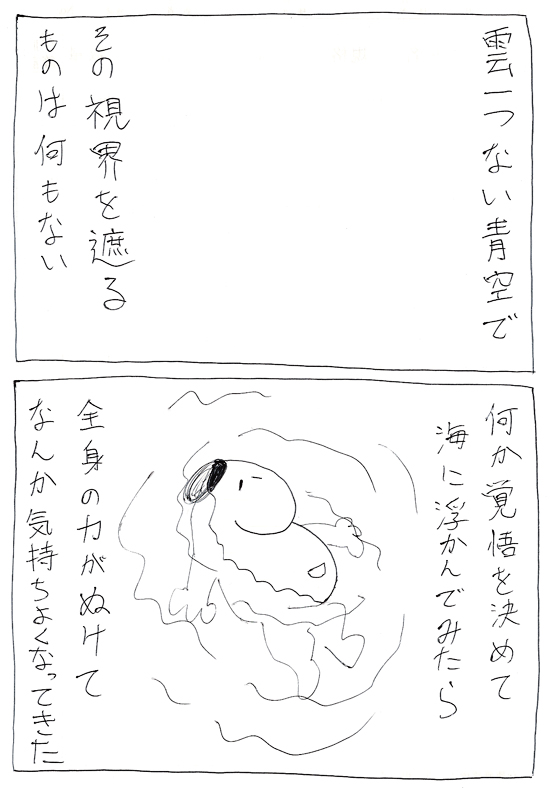 雲一つない青空で
その視界を遮る
ものは何もない
何か覚悟を決めて
海に浮かんでみたら
全身の力がぬけて
なんか気持ちよくなってきた